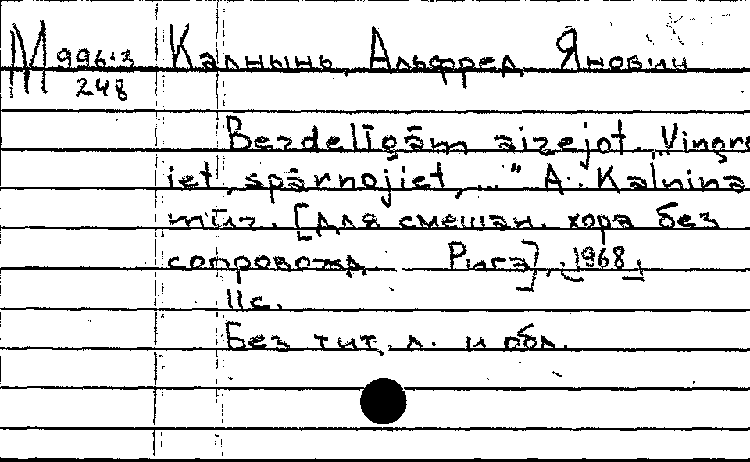 М 996:3 Калнынь, Альфред Янович
248
Bezdelīgām aizejot. „Vingro-
iet, spārnojiet, ..." A. Kalniņa
mūz. [Для смешан. хора без
сопровожд. Рига], 1968
11 с.
Без тит. л. и обл.